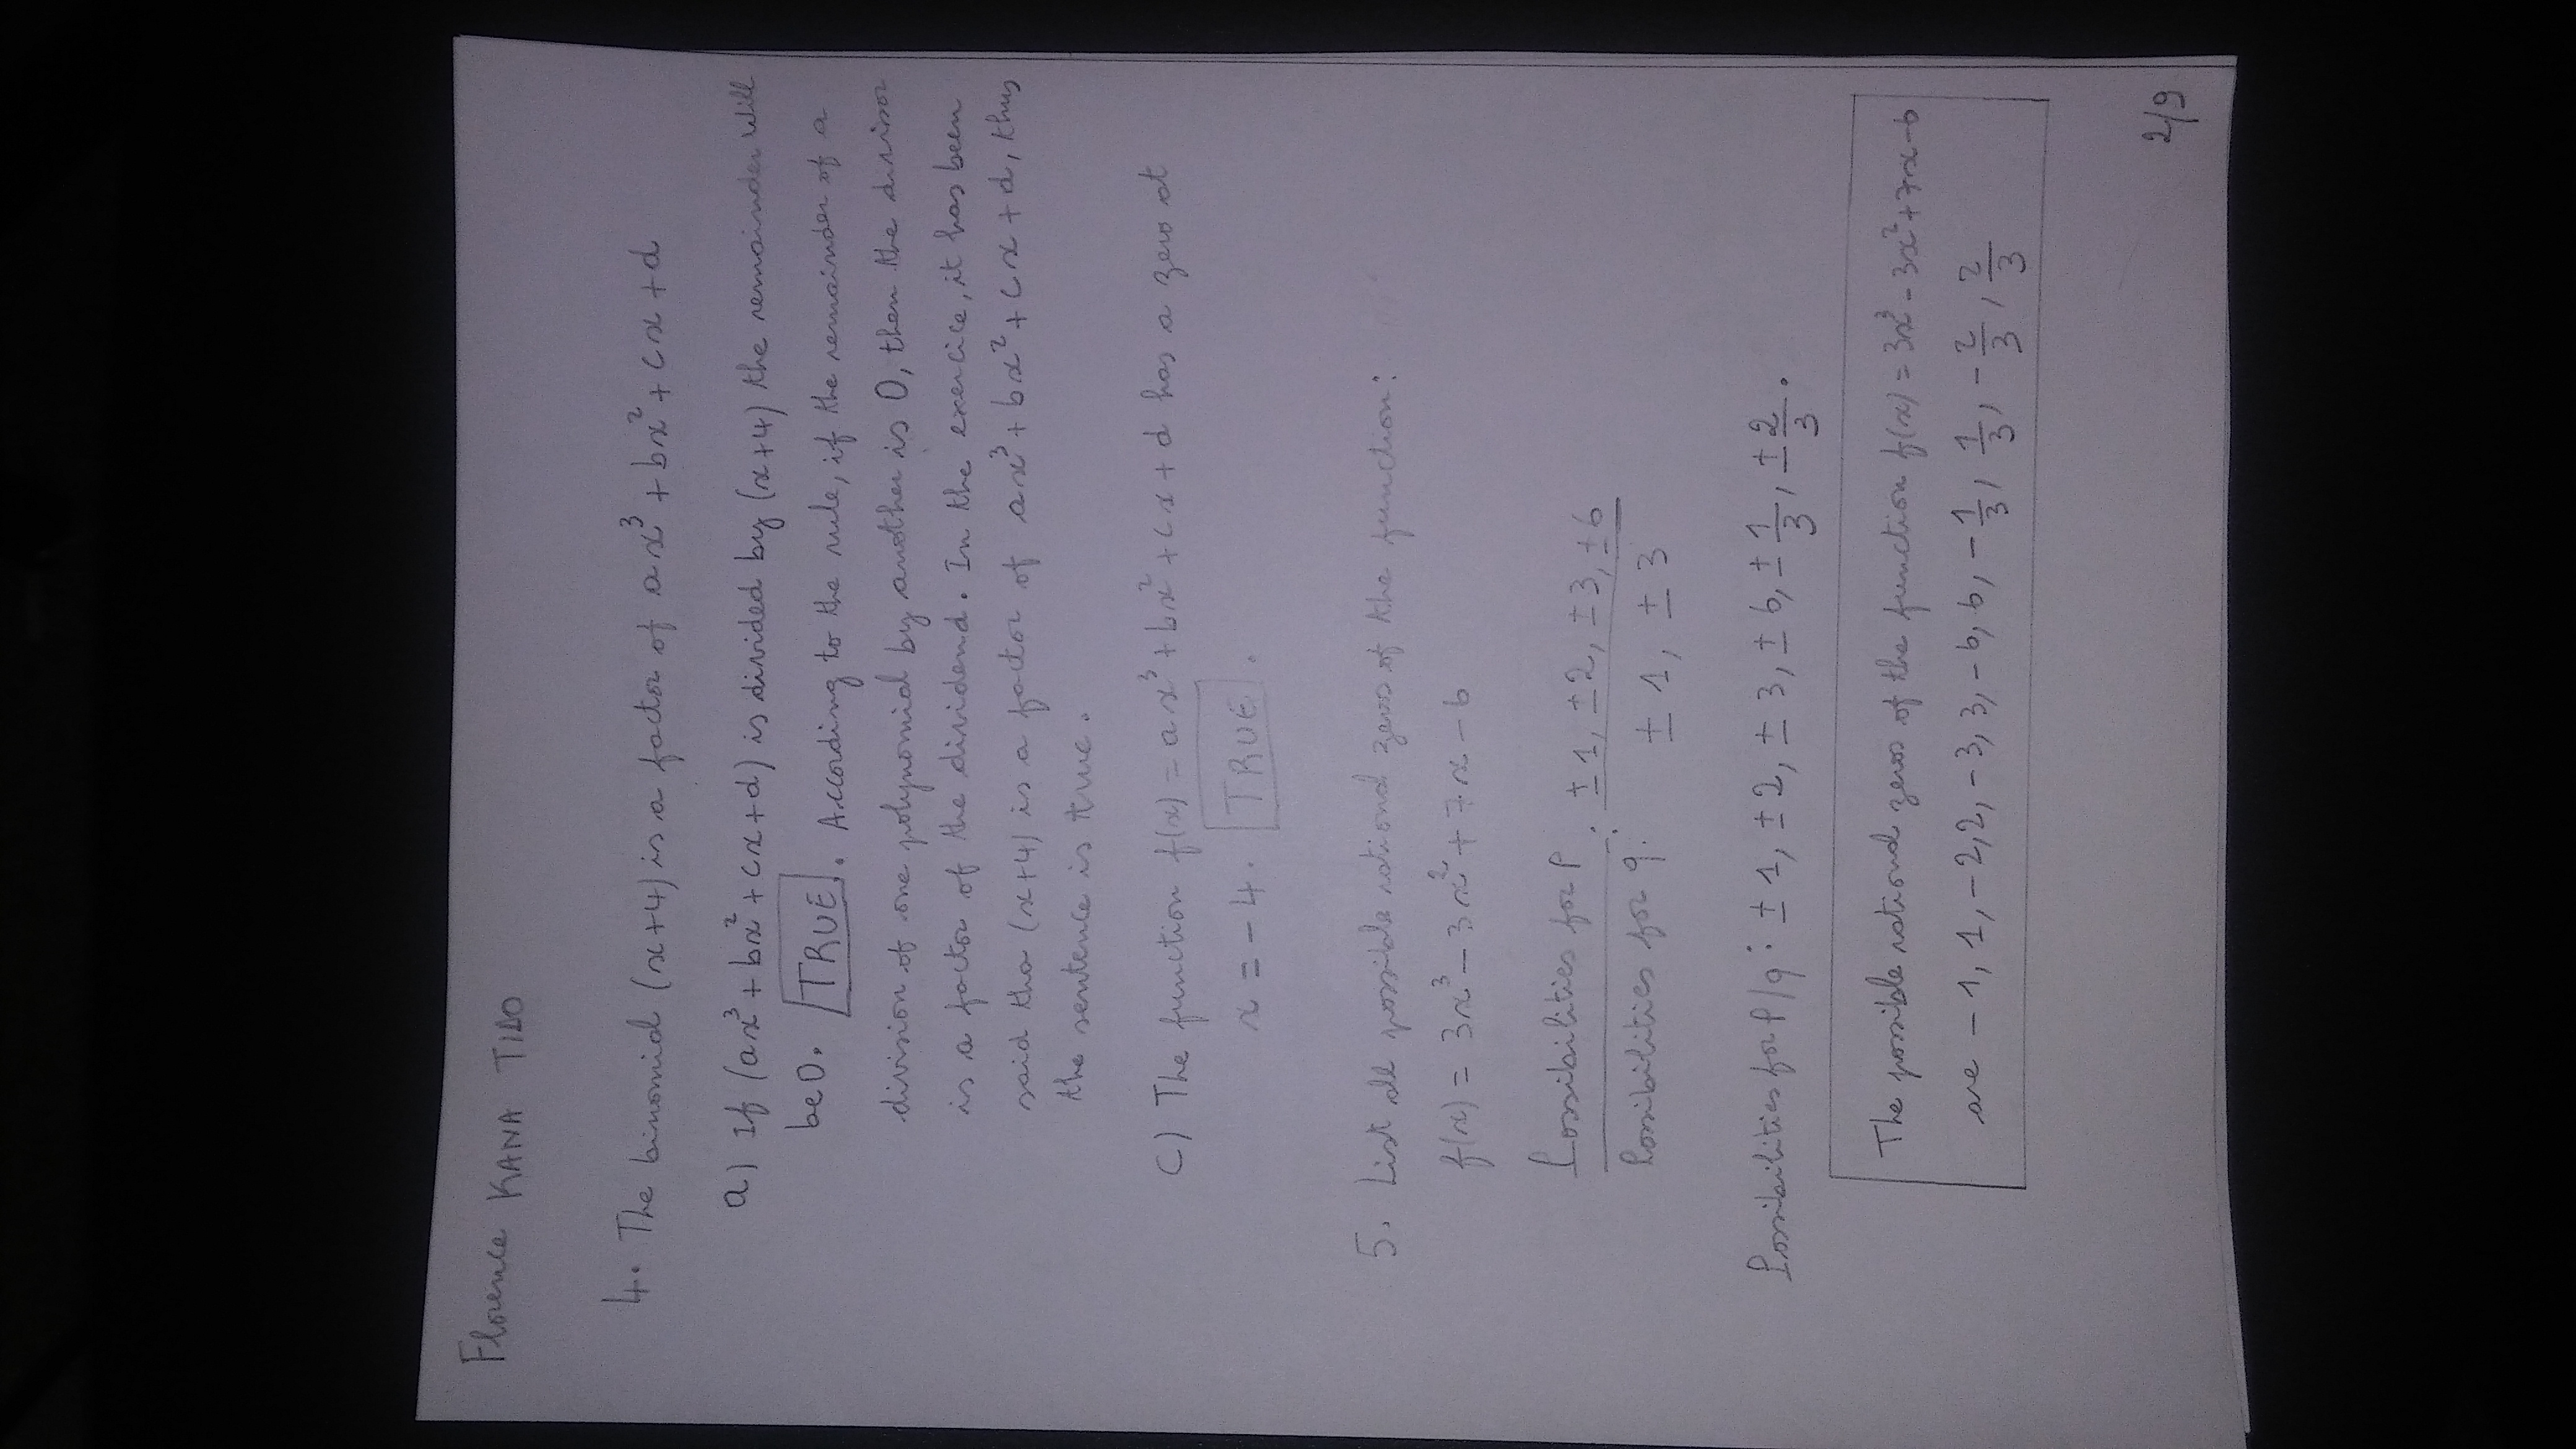 Florence KANA TIDO
4. The binomial (x+4) is a factor of ax³ + bx² + cx + d
a) If (ax³ + bx² + cx + d) is divided by (x+4) the remainder will
be 0. TRUE. According to the rule, if the remainder of a
division of one polynomial by another is 0, then the divisor
is a factor of the dividend. In the exercice, it has been
said tha (x+4) is a factor of ax³ + bx² + cx + d, thus
the sentence is true.
C) The function f(x) = ax³ + bx² + cx + d has a zero at
x = -4. TRUE.
5. List all possible rational zeros of the function:
f(x) = 3x³ - 3x² + 7x - 6
Possibilities for P : ±1, ±2, ±3, ±6
Possibilities for q. ±1, ±3
Possibilities for P/q : ±1, ±2, ±3, ±6, ±1/3, ±2/3.
The possible rational zeros of the function f(x) = 3x³ - 3x² + 7x - 6
are -1, 1, -2, 2, -3, 3, -6, 6, -1/3, 1/3, -2/3, 2/3
2/9